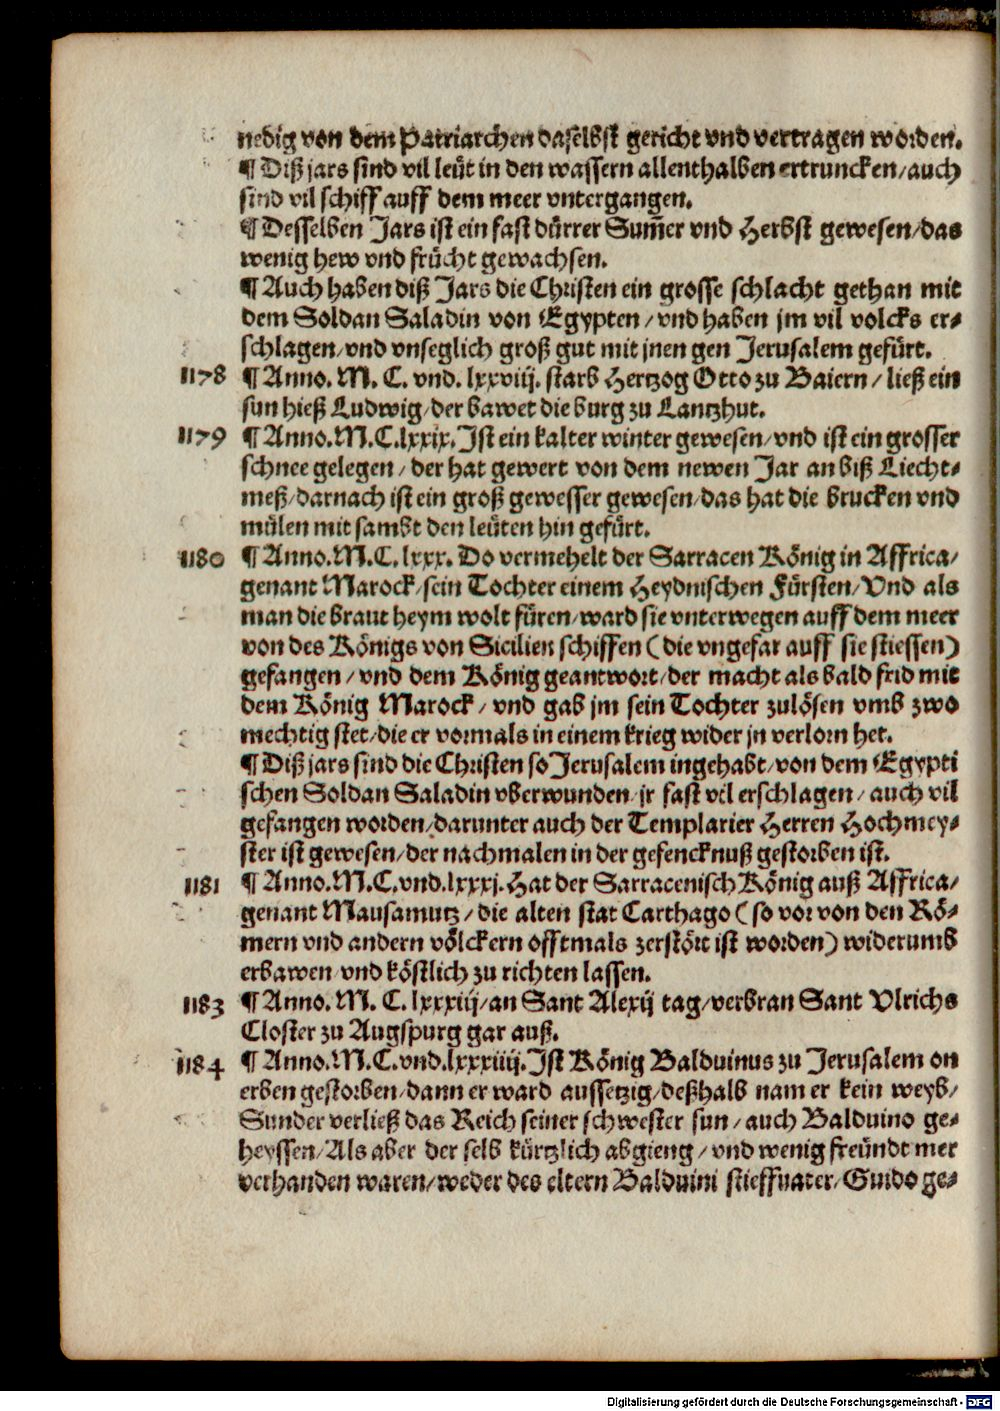 nedig von dem Patriarchen daselbst gericht vnd vertragen worden.
¶ Diß jars sind vil leüt in den wassern allenthalben ertruncken/auch
sind vil schiff auff dem meer vntergangen.
¶ Desselben Jars ist ein fast dürrer Sum̃er vnd Herbst gewesen/das
wenig hew vnd frücht gewachsen.
¶ Auch haben diß Jars die Christen ein grosse schlacht gethan mit
dem Soldan Saladin von Egypten/vnd haben jm vil volcks er⸗
schlagen/vnd vnseglich groß gut mit jnen gen Jerusalem gefürt.
1178 ¶ Anno. M. C. vnd. lxxviij. starb Hertzog Otto zu Baiern/ließ ein
sun hieß Ludwig/der bawet die burg zu Lantzhut.
1179 ¶ Anno.M.C.lxxix.Jst ein kalter winter gewesen/vnd ist ein grosser
schnee gelegen/der hat gewert von dem newen Jar an biß Liecht⸗
meß/darnach ist ein groß gewesser gewesen/das hat die brucken vnd
mülen mit sambt den leüten hin gefürt.
1180 ¶ Anno.M.C.lxxx. Do vermehelt der Sarracen König in Affrica/
genant Marock/sein Tochter einem Heydnischen Fürsten/Vnd als
man die braut heym wolt füren/ward sie vnterwegen auff dem meer
von des Königs von Sicilien schiffen (die vngefar auff sie stiessen)
gefangen/vnd dem König geantwort/der macht als bald frid mit
dem König Marock/vnd gab jm sein Tochter zulösen vmb zwo
mechtig stet/die er vormals in einem krieg wider jn verlorn het.
¶ Diß jars sind die Christen so Jerusalem ingehabt/von dem Egypti
schen Soldan Saladin vberwunden/jr fast vil erschlagen/auch vil
gefangen worden/darunter auch der Templarier Herren Hochmey⸗
ster ist gewesen/der nachmalen in der gefencknuß gestorben ist.
1181 ¶ Anno.M.C.vnd.lxxxj.Hat der Sarracenisch König auß Affrica/
genant Mausamutz/die alten stat Carthago (so vor von den Rö⸗
mern vnd andern völckern offtmals zerstört ist worden) widerumb
erbawen/vnd köstlich zu richten lassen.
1183 ¶ Anno. M. C. lxxxiij/an Sant Alexij tag/verbran Sant Vlrichs
Closter zu Augspurg gar auß.
1184 ¶ Anno.M.C.vnd.lxxxiiij.Jst König Balduinus zu Jerusalem on
erben gestorben/dann er ward aussetzig/deßhalb nam er kein weyb/
Sunder verließ das Reich seiner schwester sun/auch Balduino ge⸗
heyssen/Als aber der selb kürtzlich abgieng/vnd wenig freündt mer
verhanden waren/weder des eltern Balduini stieffuater/Guido ge⸗
Digitalisierung gefördert durch die Deutsche Forschungsgemeinschaft - DFG